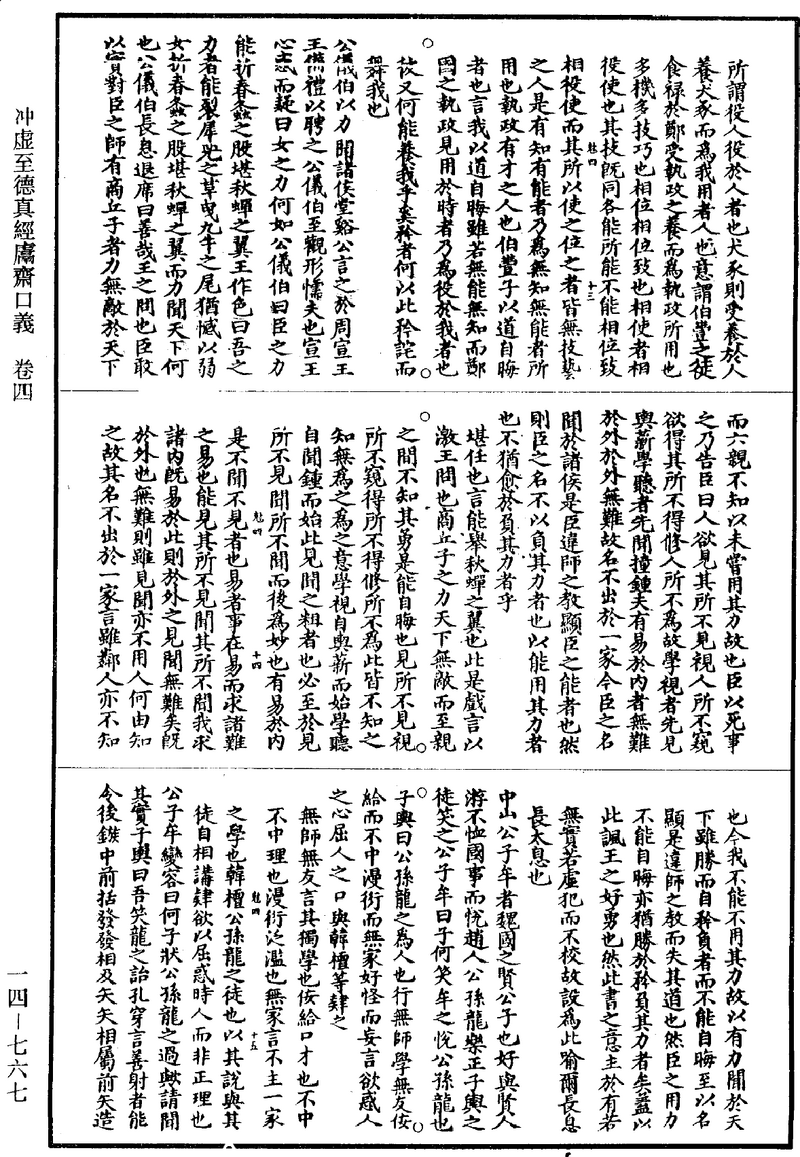 冲虛至德真經鬳齋口義 卷四
一四—七六七
所謂役人役於人者也犬豕則受養於人
養犬豕而爲我用者人也意謂伯豐之徒
食祿於鄭受執政之養而爲執政所用也
多機多技巧也相位相位致也相使者相
役使也其技既同各能所能不能相位致
魁四
十三
相役使而其所以使之位之者皆無技藝
之人是有知有能者乃爲無知無能者所
用也執政有才之人也伯豐子以道自晦
者也言我以道自晦雖若無能無知而鄭
國之執政見用於時者乃爲役於我者也
彼又何能養我乎奚矜者何以此矜詫而
舞我也
公儀伯以力聞諸侯堂谿公言之於周宣王
王備禮以聘之公儀伯至觀形懦夫也宣王
心惑而疑曰女之力何如公儀伯曰臣之力
能折春螽之股堪秋蟬之翼王作色曰吾之
力者能裂犀兕之革曳九牛之尾猶憾以弱
女折春螽之股堪秋蟬之翼而力聞天下何
也公儀伯長息退席曰善哉王之問也臣敢
以實對臣之師有商丘子者力無敵於天下
而六親不知以未嘗用其力故也臣以死事
之乃告臣曰人欲見其所不見視人所不窺
欲得其所不得修人所不爲故學視者先見
輿薪學聽者先聞撞鍾夫有易於內者無難
於外於外無難故名不出於一家今臣之名
聞於諸侯是臣違師之教顯臣之能者也然
則臣之名不以負其力者也以能用其力者
也不猶愈於負其力者乎
堪任也言能舉秋蟬之翼也此是戲言以
激王問也商丘子之力天下無敵而至親
之間不知其勇是能自晦也見所不見視
所不窺得所不得修所不爲此皆不知之
知無爲之爲之意學視自輿薪而始學聽
自聞鍾而始此見聞之粗者也必至於見
所不見聞所不聞而後爲妙也有易於內
魁四
十四
是不聞不見者也易者事在易而求諸難
之易也能見其所不見聞其所不聞我求
諸內既易於此則於外之見聞無難矣既
於外也無難則雖見聞亦不用人何由知
之故其名不出於一家言雖鄰人亦不知
也今我不能不用其力故以有力聞於天
下雖勝而自矜負者而不能自晦至以名
顯是違師之教而失其道也然臣之用力
不能自晦亦猶勝於矜負其力者矣蓋以
此諷王之好勇也然此書之意主於有若
無實若虛犯而不校故設爲此喻爾長息
長太息也
中山公子牟者魏國之賢公子也好與賢人
游不恤國事而悅趙人公孫龍樂正子輿之
徒笑之公子牟曰子何笑牟之悅公孫龍也
子輿曰公孫龍之爲人也行無師學無友佞
給而不中漫衍而無家好怪而妄言欲惑人
之心屈人之口與韓檀等肄之
無師無友言其獨學也佞給口才也不中
不中理也漫衍泛濫也無家言不主一家
魁四
十五
之學也韓檀公孫龍之徒也以其說與其
徒自相講肄欲以屈惑時人而非正理也
公子牟變容曰何子狀公孫龍之過歟請聞
其實子輿曰吾笑龍之詒孔穿言善射者能
令後鏃中前括發發相及矢矢相屬前矢造